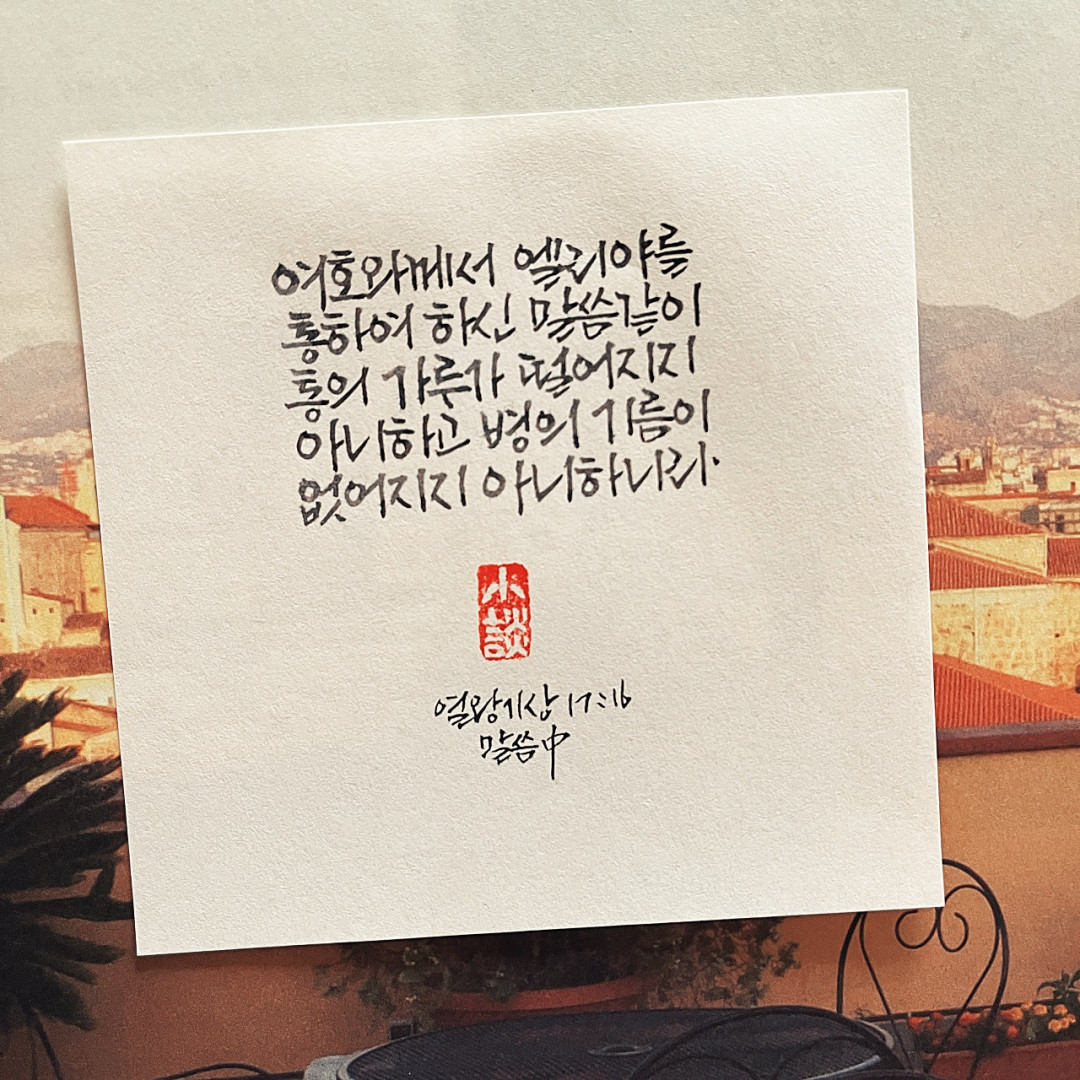 여호와께서 엘리야를
통하여 하신 말씀같이
통의 가루가 떨어지지
아니하고 병의 기름이
없어지지 아니하니라.
小
談
열왕기상 17:16
말씀中